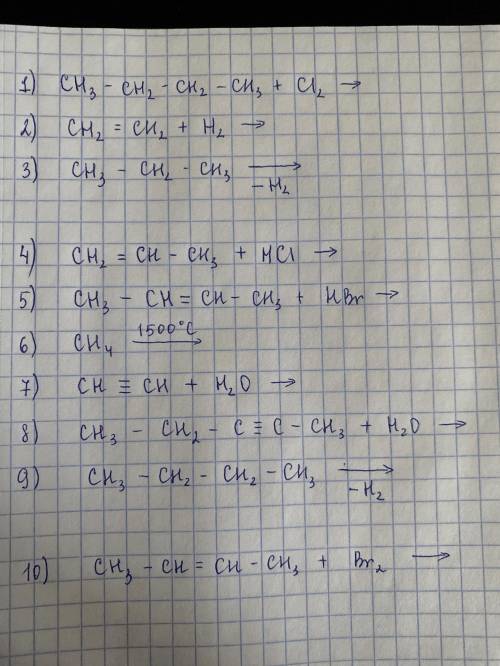 1) CH₃ - CH₂ - CH₂ - CH₃ + Cl₂ →
2) CH₂ = CH₂ + H₂ →
3) CH₃ - CH₂ - CH₃ →
-H₂
4) CH₂ = CH - CH₃ + HCl →
5) CH₃ - CH = CH - CH₃ + HBr →
1500°C
6) CH₄ →
7) CH ≡ CH + H₂O →
8) CH₃ - CH₂ - C ≡ C - CH₃ + H₂O →
9) CH₃ - CH₂ - CH₂ - CH₃ →
-H₂
10) CH₃ - CH = CH - CH₃ + Br₂ →